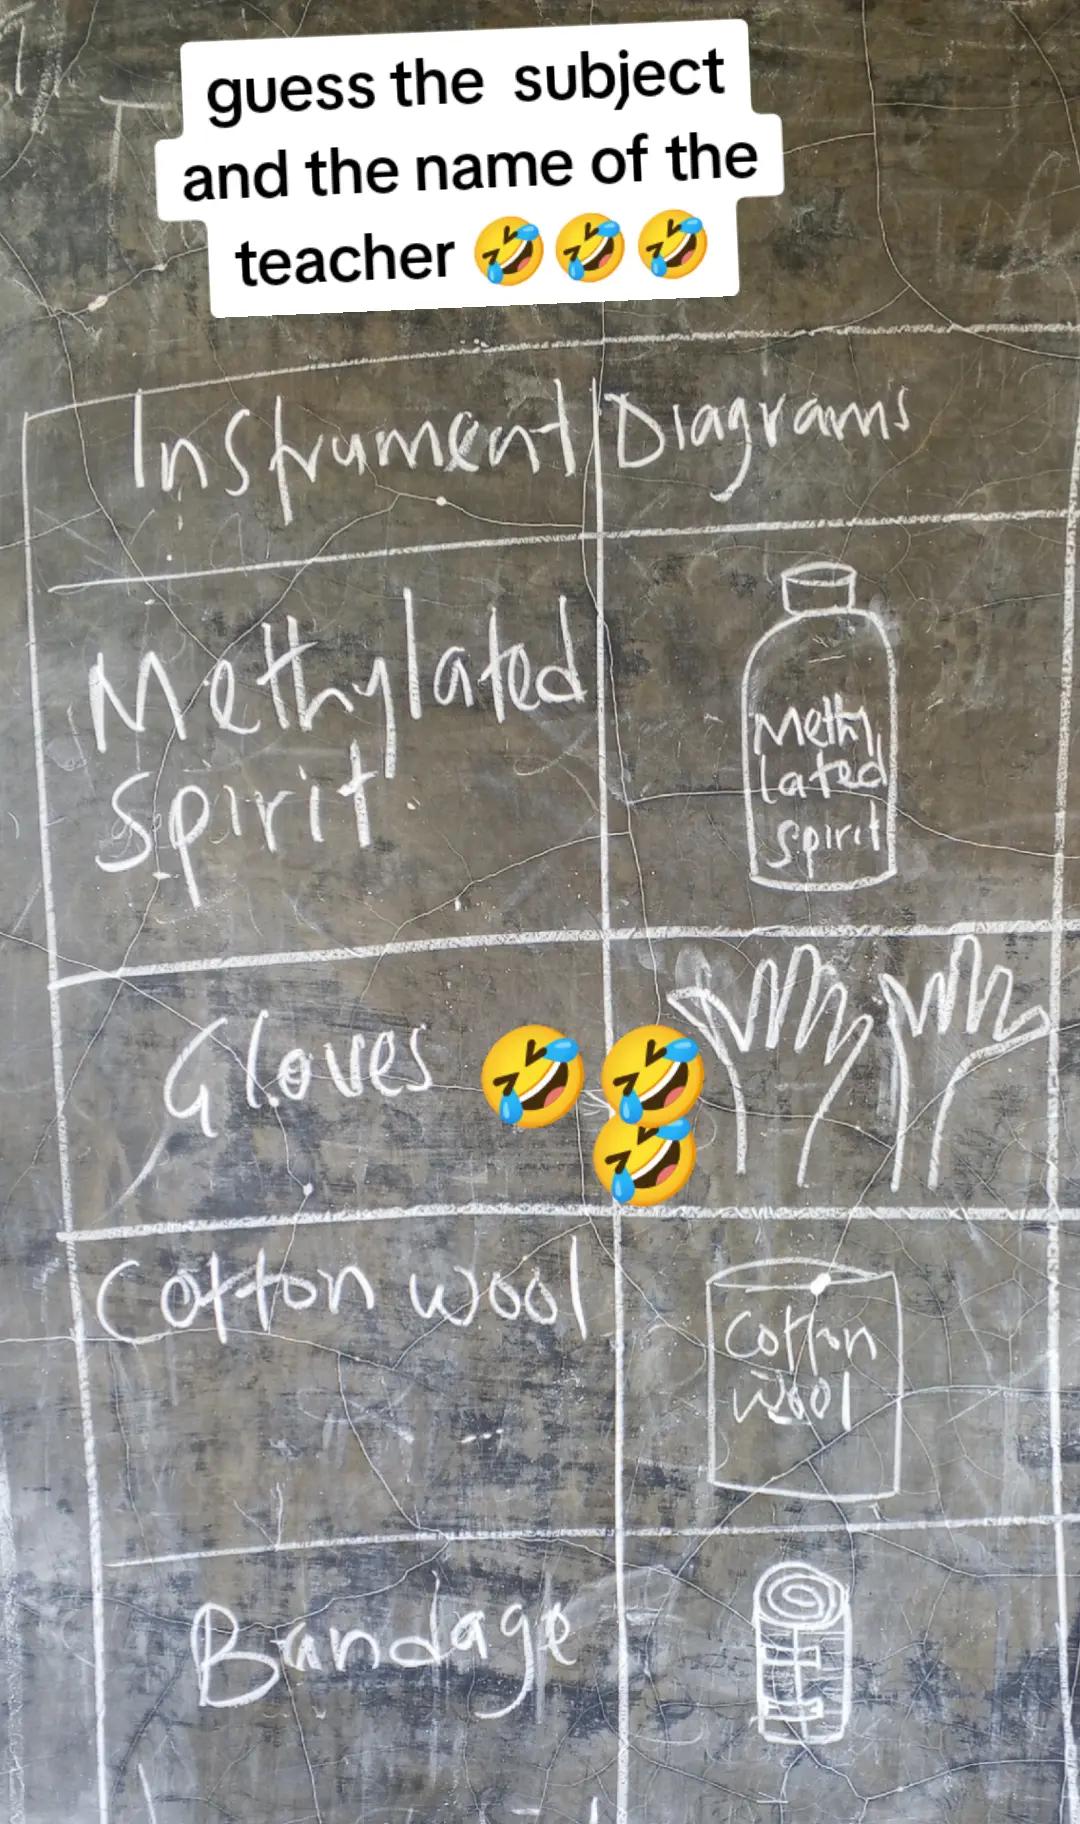 guess the subject
and the name of the
teacher 🤣🤣🤣
Instrument Diagrams
Methylated
Spirit.
Methy
lated
spirit
Gloves 🤣🤣
🤣
Cotton wool
Cotton
wool
Bandage